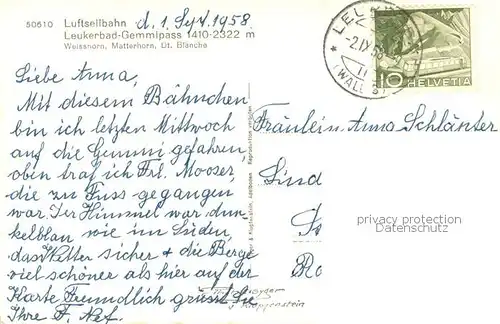 50610 Luftseilbahn d. 1. Sept. 1958.
Leukerbad-Gemmipass 1410-2322 m
Weisshorn, Matterhorn, Dt. Blanche
Liebe Anna,
Mit diesem Bähnchen
bin ich letzten Mittwoch
auf die Gemmi gefahren,
oben traf ich Frl. Mooser,
die zu Fuss gegangen
war. Der Himmel war dun-
kelblau wie im Süden,
das Wetter sicher & die Berge
viel schöner als hier auf der
Karte. Freundlich grüsst Sie
Ihre F. Nef.
-2.IX.58
(WALLIS)
10 HELVETIA
Fräulein Anna Schlänter
Lind
Ro
privacy protection
Datenschutz
Klopfenstein